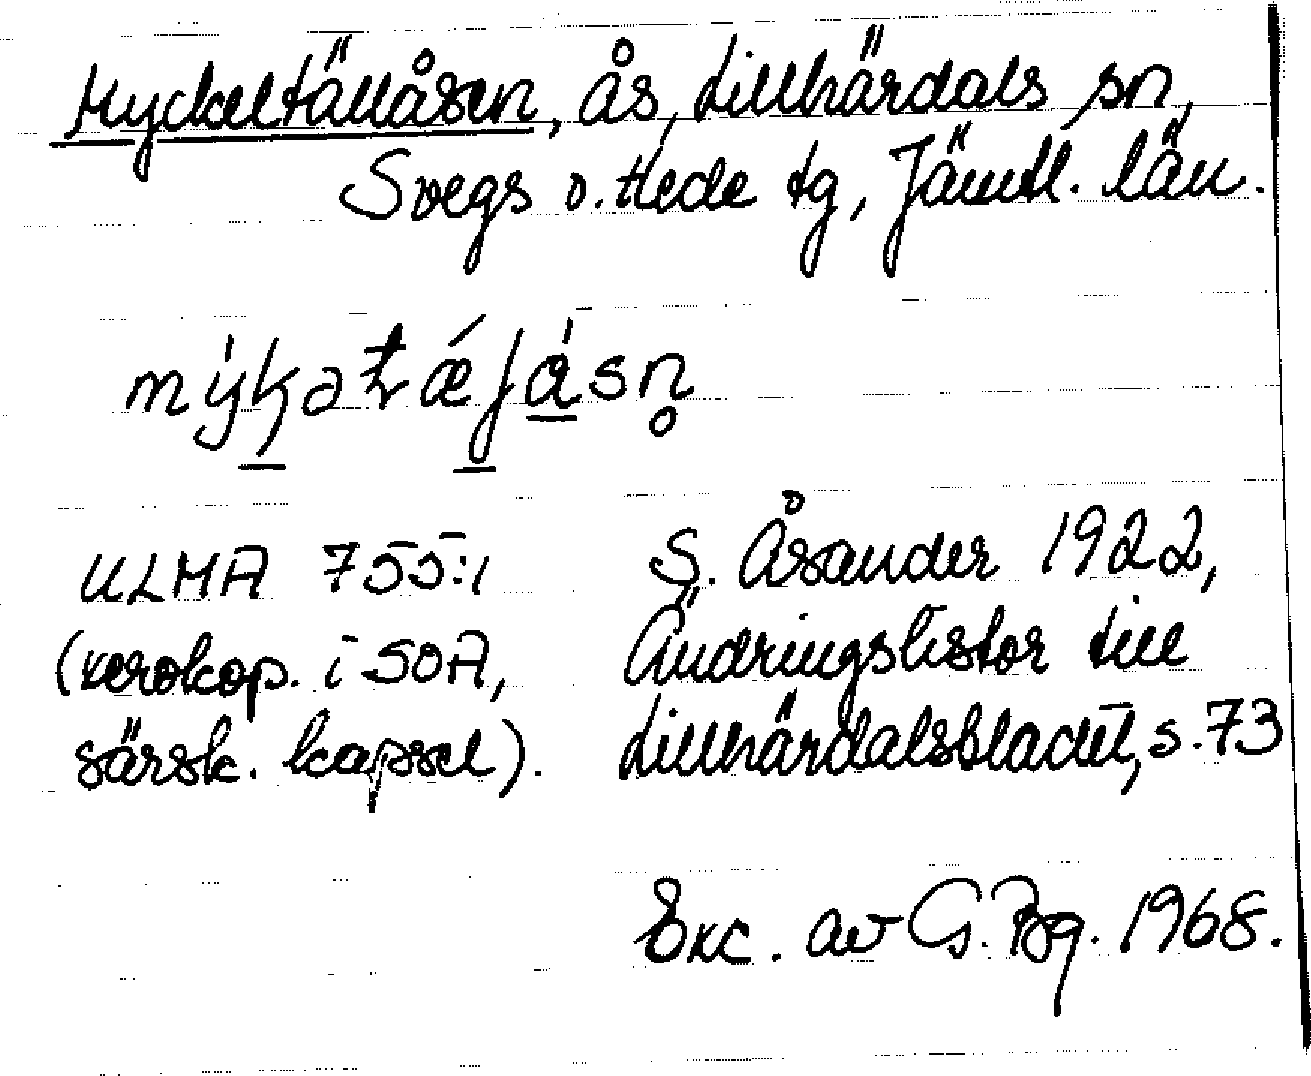 Myckeltällåsen, ås, Lillhärdals sn,
Svegs o. Hede tg, Jämtl. län.
ULMA 755:1
(xerokop. i SOA,
särsk. kapsel).
S. Åsander 1922,
Ändringslistor till
Lillhärdalsbladet, s. 73
Exc. av G. Bg. 1968.